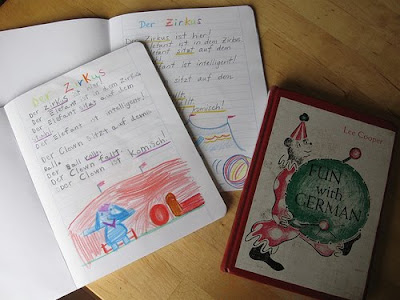 Der Zirkus
Der Zirkus ist hier!
Der Elefant ist in dem Zirkus
Der Elefant sitzt auf dem
Stuhl.
Der Elefant ist intelligent!
Der Clown sitzt auf dem
Ball.
Ball rollt.
Der Clown fällt.
Der Clown ist komisch!
Der Zirkus
Zirkus ist hier!
Elefant ist in dem Zirkus
Elefant sitzt auf dem
ist intelligent!
sitzt auf dem
komisch!
Lee Cooper
FUN
with
GERMAN